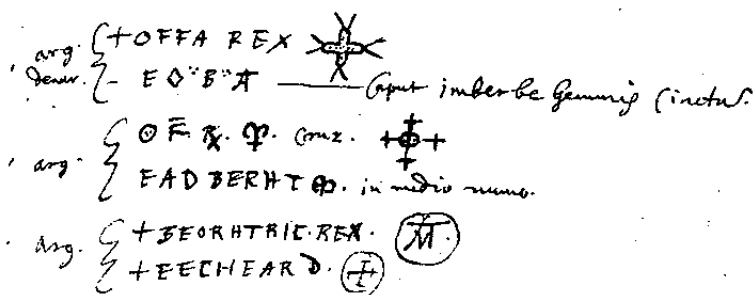 arg. + OFFA REX
denar. - E O B A Caput imberbe Gemmis Cinctu.
O F Rx. M. crux.
arg. EADBERHT M. in medio numo.
arg. + BEORHTRIC·REX. M.
+ EECHEARD.